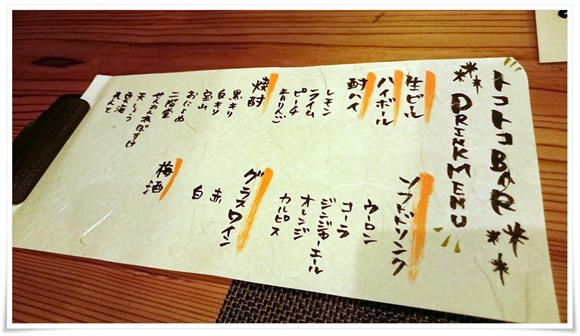 トコトコBAR
DRINK MENU
生ビール
ハイボール
酎ハイ
レモン
ライム
ピーチ
青りんご
焼酎
黒キリ
白キリ
宝山
おによめ
二階堂
ぜんかれぼすけ
天しょう
きの海
えんま
ソフトドリンク
ウーロン
コーラ
ジンジャーエール
オレンジ
カルピス
グラスワイン
赤
白
梅酒